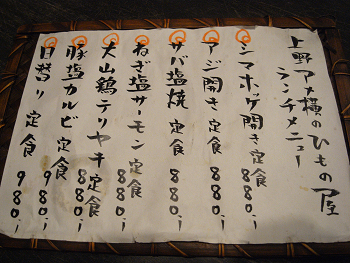 上野アメ横のひもの屋
ランチメニュー
シマホッケ開き定食 880.-
アジ開き定食 880.-
サバ塩焼定食 880.-
ねぎ塩サーモン定食 880.-
大山鶏テリヤキ定食 880.-
豚塩カルビ定食 980.-
日替り定食 980.-